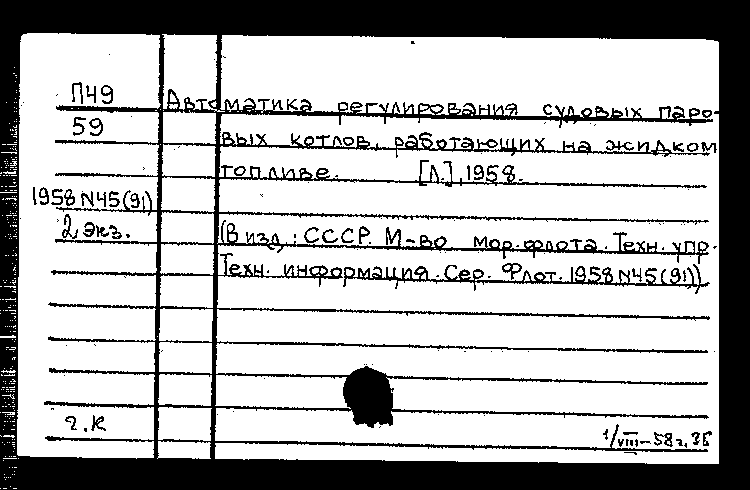 П49
59
1958 N45(91)
2 экз.
Автоматика регулирования судовых паро-
вых котлов, работающих на жидком
топливе. [Л.], 1958.
(В изд.: СССР. М-во мор. флота. Техн. упр.
Техн. информация. Сер. Флот. 1958 N45(91))
г.к
1/VIII-58г.